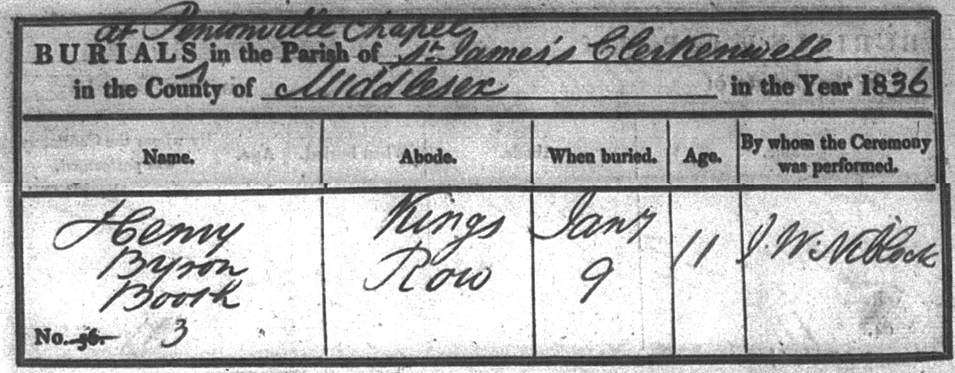 at Pentonville Chapel
BURIALS in the Parish of St. James's Clerkenwell
in the County of Middlesex in the Year 1836
Name. Abode. When buried. Age. By whom the Ceremony was performed.
Henry Kings Jany
Byron Row 9 11 J. W. Niblock
Booth
No. 36. 3